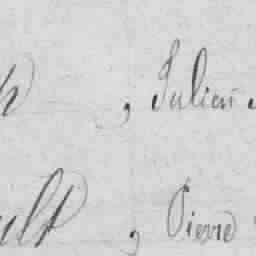 , Julien
ult, Pierre